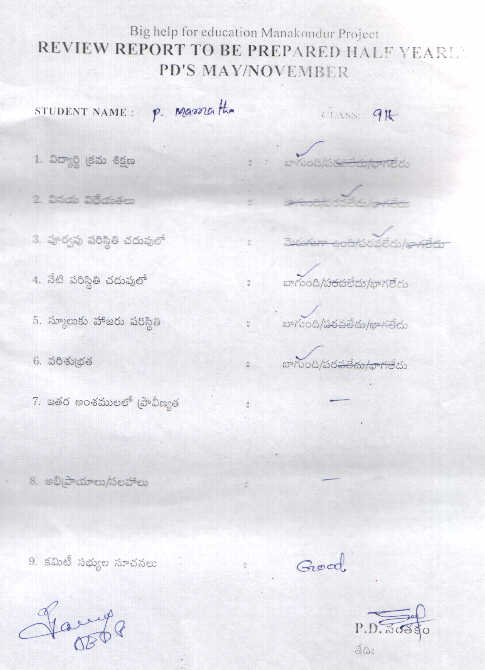 Big help for education Manakondur Project
REVIEW REPORT TO BE PREPARED HALF YEARLY
PD'S MAY/NOVEMBER
STUDENT NAME : P. Mamatha CLASS: 9th
1. విద్యార్థి క్రమ శిక్షణ : బాగుంది/పరవలేదు/భాగలేదు
2. వినయ విధేయతలు : బాగుంది/పరవలేదు/భాగలేదు
3. పూర్వపు పరిస్థితి చదువులో : మెరుగుగా ఉంది/పరవలేదు/భాగలేదు
4. నేటి పరిస్థితి చదువులో : బాగుంది/పరవలేదు/భాగలేదు
5. స్కూలుకు హాజరు పరిస్థితి : బాగుంది/పరవలేదు/భాగలేదు
6. పరిశుభ్రత : బాగుంది/పరవలేదు/భాగలేదు
7. ఇతర అంశములలో ప్రావీణ్యత : —
8. అభిప్రాయాలు/సలహాలు : —
9. కమిటీ సభ్యుల సూచనలు : Good
P.D. సంతకం
తేది: